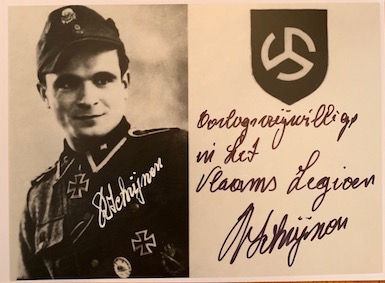 RSchrijnen
Oorlogsvrijwillige
in het
Vlaams Legioen
RSchrijnen